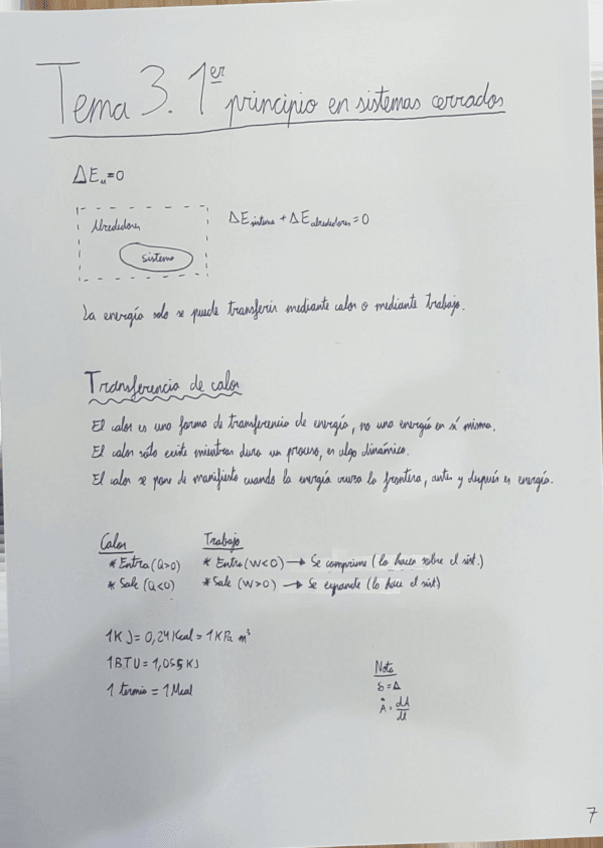 Tema 3. 1er principio en sistemas cerrados
ΔEu=0
Alrededores
Sistema
ΔEsistema + ΔEalrededores=0
La energía solo se puede transferir mediante calor o mediante trabajo.
Transferencia de calor
El calor es una forma de transferencia de energía, no una energía en sí misma.
El calor sólo existe mientras dura un proceso, es algo dinámico.
El calor se pone de manifiesto cuando la energía cruza la frontera, antes y después es energía.
Calor Trabajo
* Entra (Q>0) * Entra (W<0) → Se comprime (lo hacen sobre el sist.)
* Sale (Q<0) * Sale (W>0) → Se expande (lo hace el sist)
1KJ=0,24Kcal=1KPa m³
1BTU=1,055KJ
1 termia = 1Mcal
Nota
δ=Δ
Ȧ=dA/dt
7